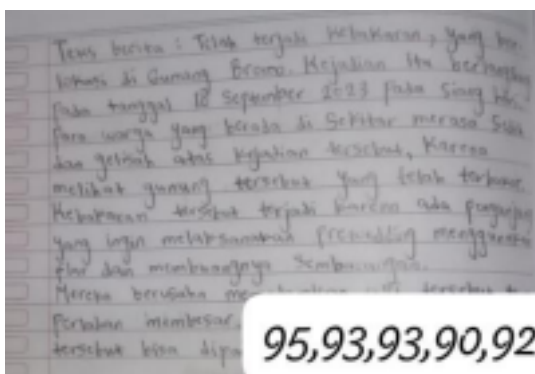 Teks berita : Telah terjadi kebakaran, yang ber
lokasi di Gunung Bromo. Kejadian itu berlangsung
pada tanggal 18 September 2023 pada siang
para warga yang berada di sekitar merasa
dan gelisah atas kejadian tersebut, karena
melihat gunung tersebut yang telah terbakar.
Kebakaran tersebut terjadi karena ada pengunjung
yang ingin melaksanakan prewedding menggunakan
flar dan membuangnya sembarangan.
Mereka berusaha tersebut
perlahan membesar.
tersebut bisa dipa
95,93,93,90,92